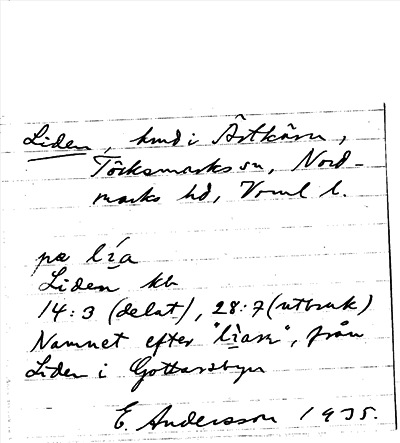 Liden, hmd i Östkärn,
Töcksmarks sn, Nord-
marks hd, Vrml l.
pæ lía
Liden kb
14:3 (delat), 28:7 (utbruk)
Namnet efter "lìasn", från
Liden i Gottarsbyn
E. Andersson 1935.